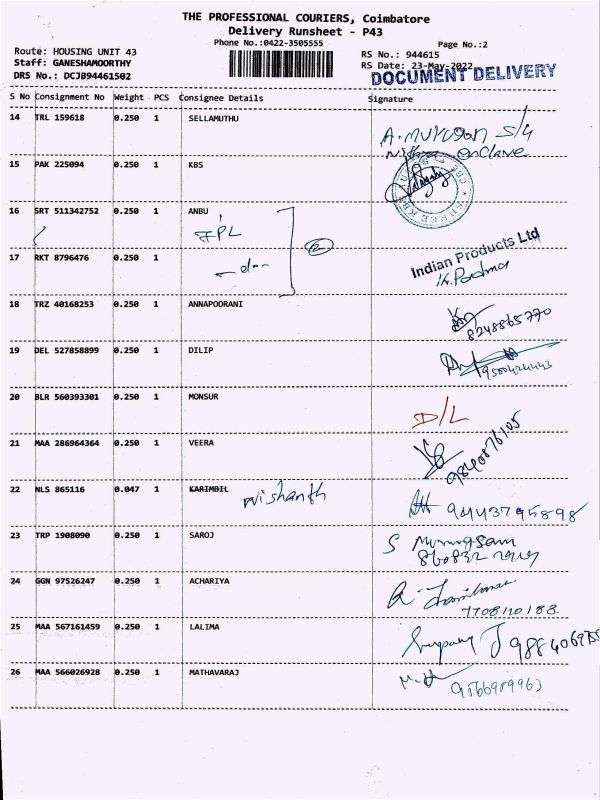 THE PROFESSIONAL COURIERS, Coimbatore
Delivery Runsheet - P43
Phone No.:0422-3505555
Page No.:2
Route: HOUSING UNIT 43
Staff: GANESHAMOORTHY
DRS No.: DCJB94461502
RS No.: 944615
RS Date: 23-May-2022
DOCUMENT DELIVERY
S No Consignment No Weight PCS Consignee Details Signature
14 TRL 159618 0.250 1 SELLAMUTHU
A. Murugan S/G
enclave
15 PAK 225094 0.250 1 KBS
16 SRT 511342752 0.250 1 ANBU
IPL
②
17 RKT 8796476 0.250 1
-do-
Indian Products Ltd
K. Padma
18 TRZ 40168253 0.250 1 ANNAPOORANI
8248865770
19 DEL 527858899 0.250 1 DILIP
20 BLR 560393301 0.250 1 MONSUR
D/L
21 MAA 286964364 0.250 1 VEERA
9840876105
22 NLS 865116 0.047 1 KARIMBIL Nishanth
9443795898
23 TRP 1908090 0.250 1 SAROJ
S
24 GGN 97526247 0.250 1 ACHARIYA
7708110188
25 MAA 567161459 0.250 1 LALIMA
26 MAA 566026928 0.250 1 MATHAVARAJ
9566989963